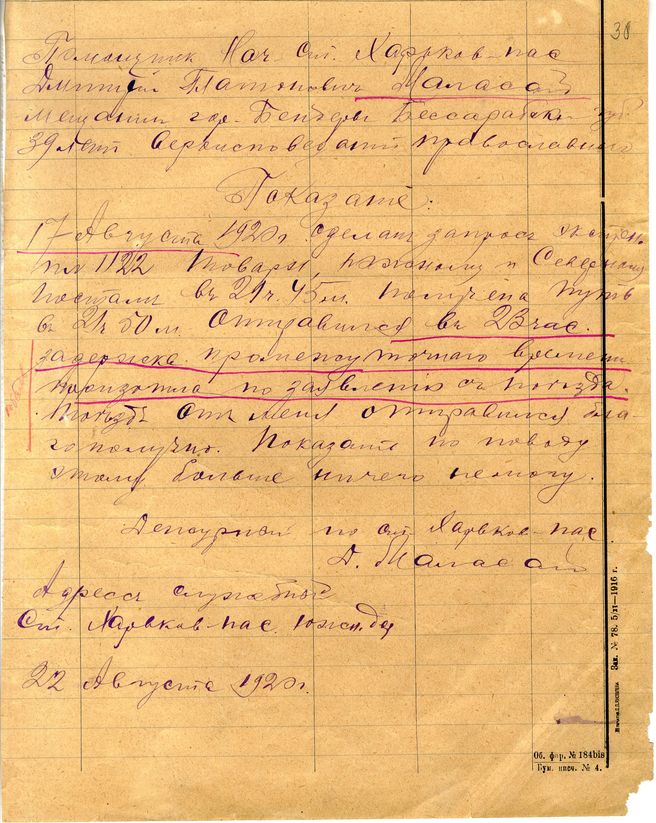 38
Помощник Нач. ст. Харьков-пас
Дмитрий Платонович Маласай
мещанин гор. Бендеры Бессарабской губ.
39 лет вероисповедания православного
Показание:
17 Августа 1920 г. сделан запрос экстрен.
1122 товарн,
постами въ 21 ч. 45 м. получена путь
въ 21 ч 50 м отправился въ 23 час.
задержка промежуточного времени
произошла по заявлению съ поезда.
Поездъ отъ меня отправился бла-
гополучно. Показать по поводу
этому больше ничего не могу.
Дежурный по ст Харьков-пас
Д. Маласай
Адресъ служебный
Ст. Харьков-пас. Южн. ж д
22 Августа 1920 г.
Зак. № 78. 5/II—1916 г.
Об. фор. № 184bis
Бум. писч. № 4.